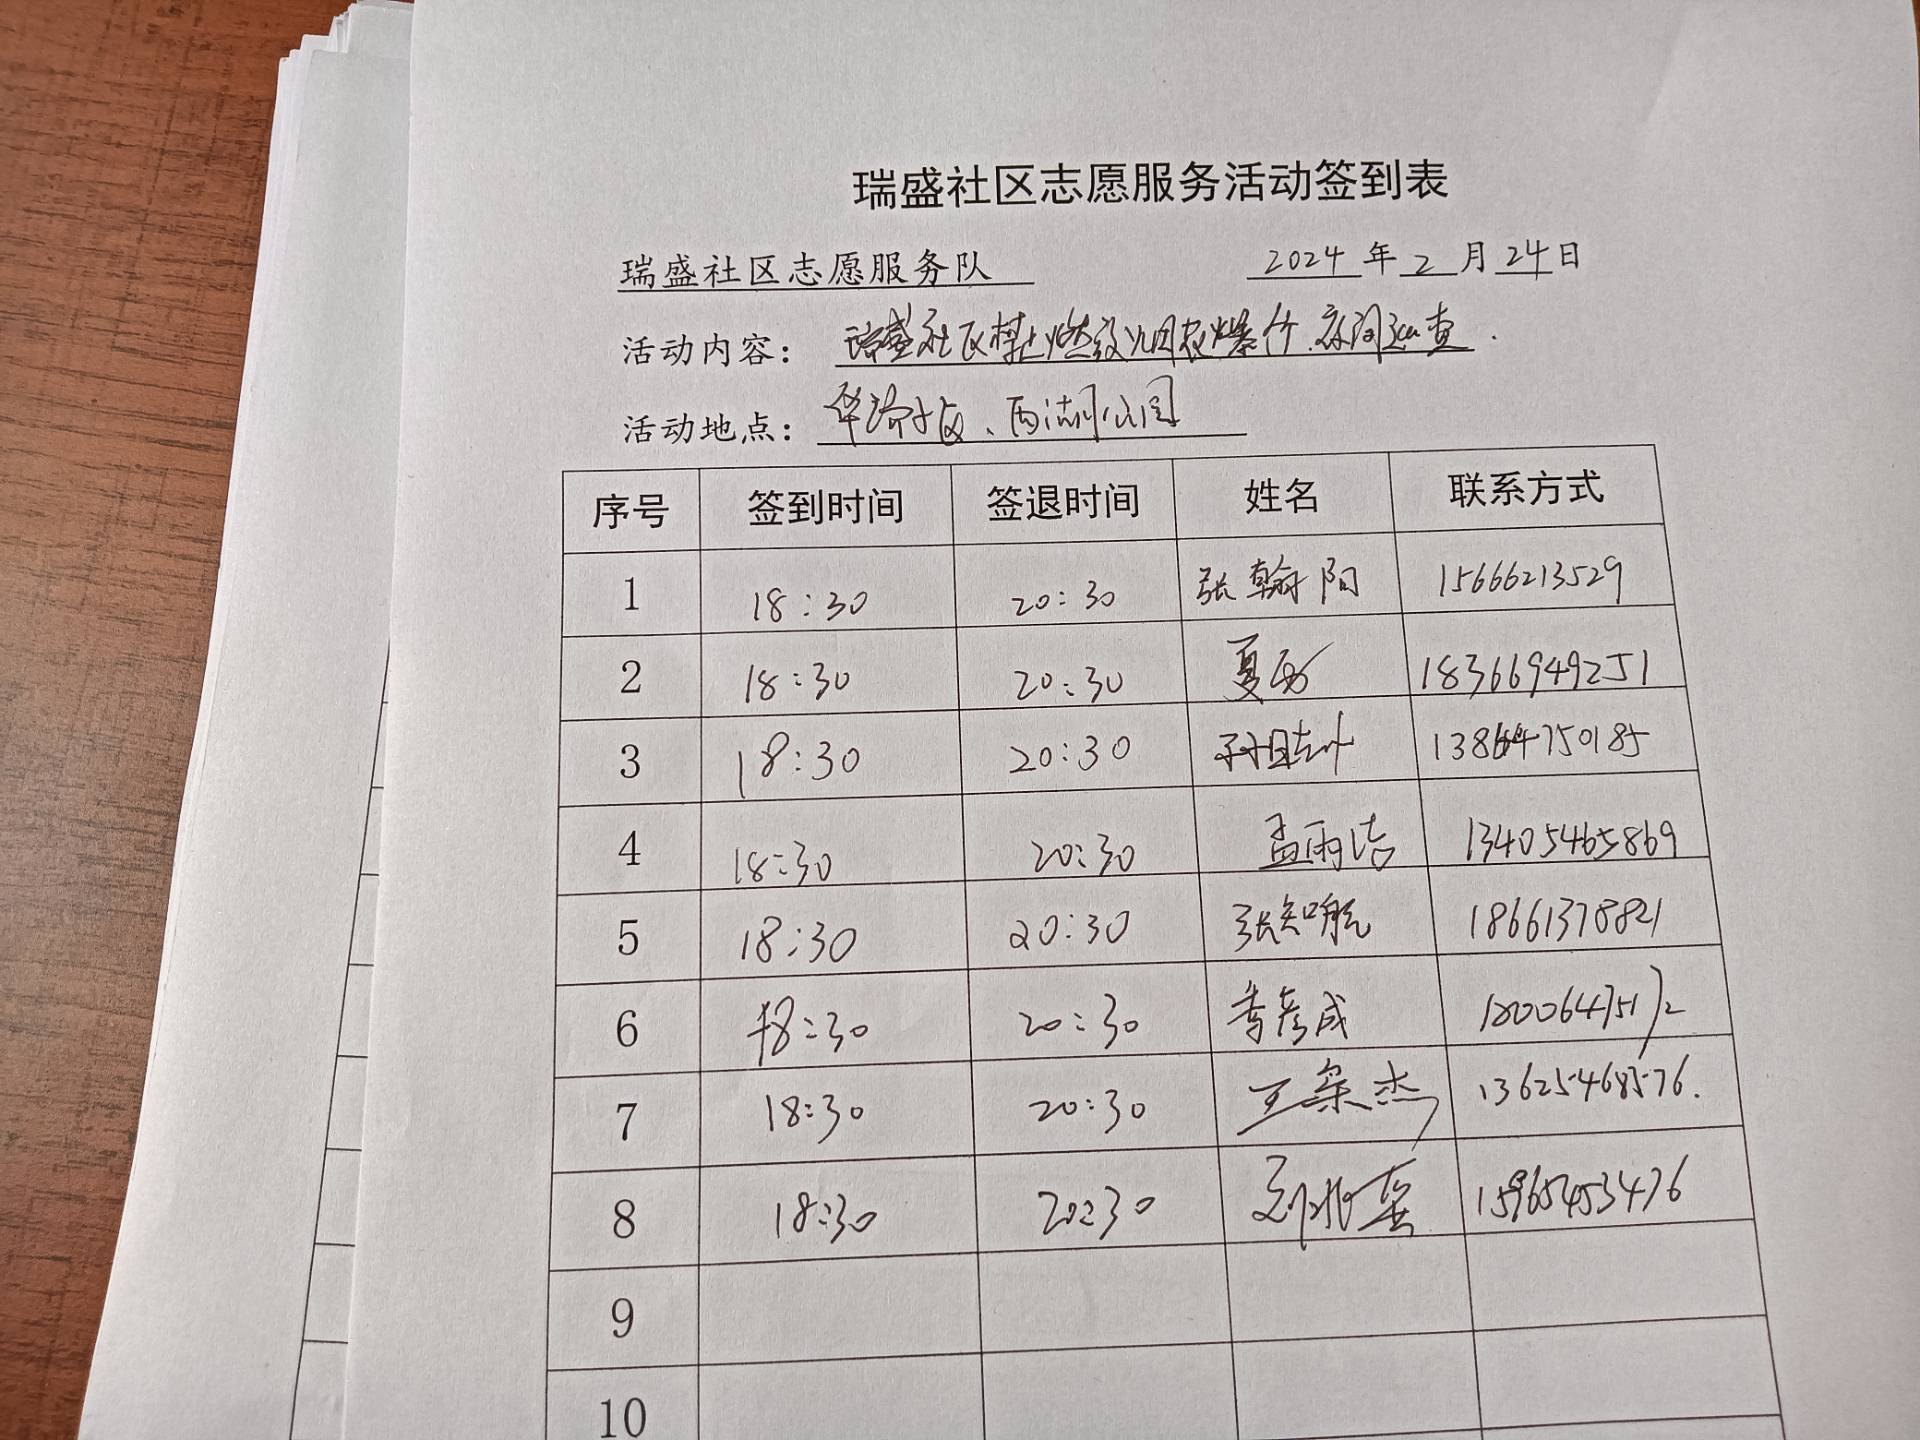 瑞盛社区志愿服务活动签到表
瑞盛社区志愿服务队 2024 年 2 月 24 日
活动内容： 瑞盛社区禁止燃放烟花爆竹.夜间巡查.
活动地点： 、西湖公园
序号 签到时间 签退时间 姓名 联系方式
1 18:30 20:30 张翰阳 15666213529
2 18:30 20:30 夏 18366949251
3 18:30 20:30 13864750185
4 18:30 20:30 孟雨洁 13405465869
5 18:30 20:30 张知航 18661378821
6 18:30 20:30 李彦成 18006475172
7 18:30 20:30 王荣杰 13625468576.
8 18:30 20:30 刘 15965453476
9
10